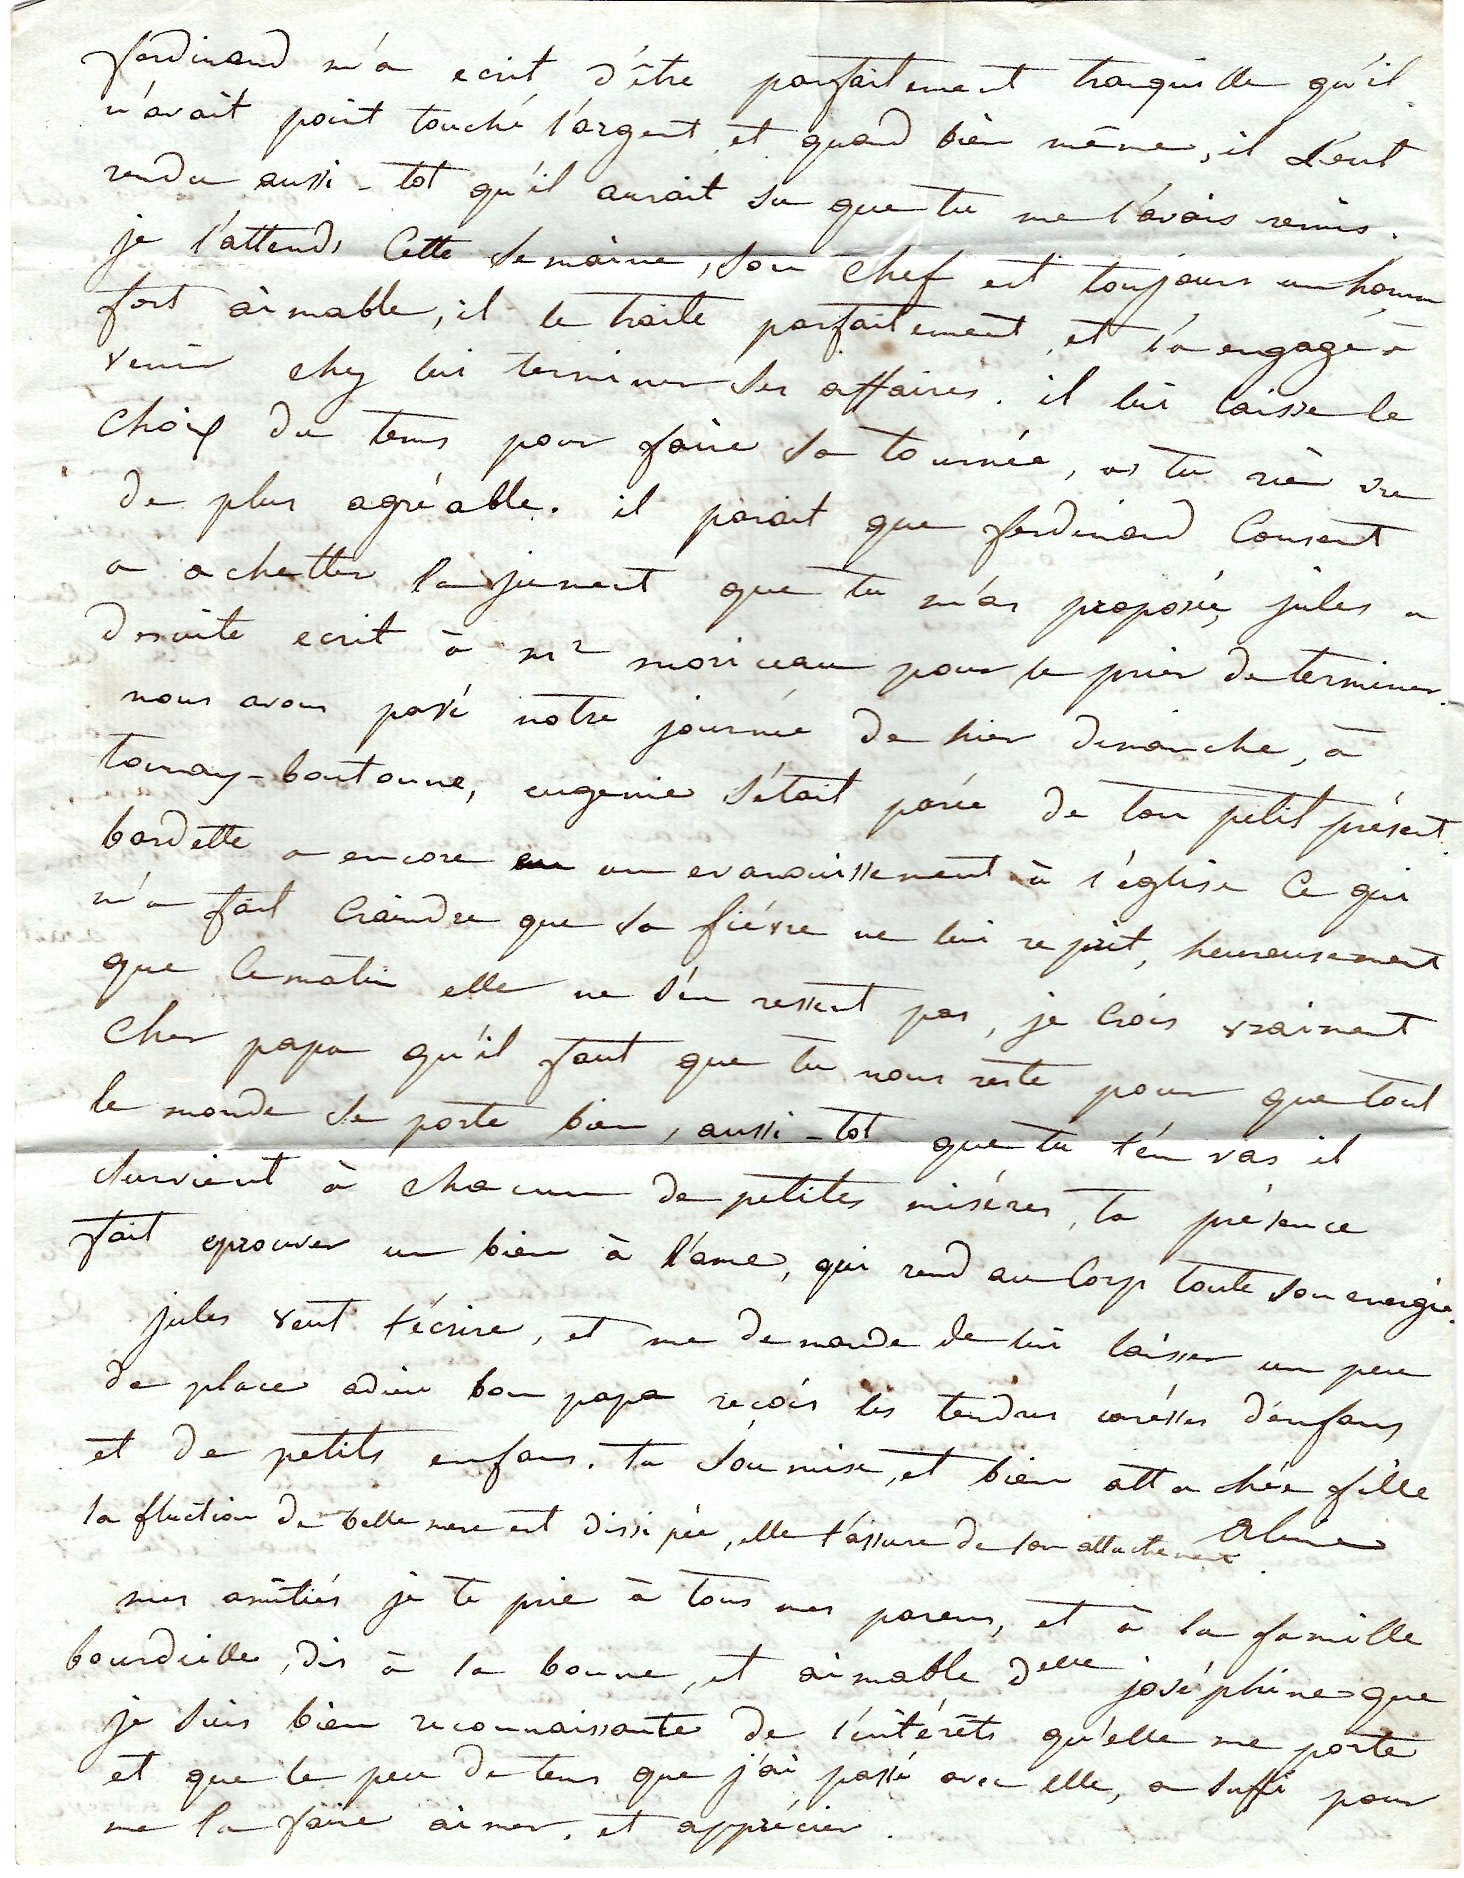 ferdinand m'a ecrit d'être parfaitement tranquille qu'il
n'avait point touché l'argent, et quand bien même, il l'eut
rendu aussi-tot qu'il aurait su que tu me l'avais remis.
je l'attends cette semaine, son chef est toujours un homme
fort aimable, il le traite parfaitement, et l'a engagé à
venir chez lui terminer ses affaires. il lui laisse le
choix du tems pour faire sa tournée, as tu rien vu
de plus agréable. il parait que ferdinand consent
a achetter la jument que tu m'as proposée, jules a
desuite ecrit à mr moriceau pour le prier de terminer.
nous avons passé notre journée de hier dimanche, à
tonnay-boutonne, eugenie s'était parée de ton petit présent.
bardette a encore eu un evanouissement à l'église ce qui
m'a fait craindre que sa fiévre ne lui reprit, heureusement
que ce matin elle ne s'en ressent pas, je crois vraiment
cher papa qu'il faut que tu nous reste pour que tout
le monde se porte bien, aussi-tot que tu t'en vas il
survient à chacun de petites miséres, ta présence
fait eprouver un bien à l'ame, qui rend au corp toute son energie.
jules veut t'écrire, et me demande de lui laisser un peu
de place adieu bon papa reçois les tendres caresses d'enfans
et de petits enfans. ta soumise, et bien attachée fille
la fluction de belle mere est dissipée, elle t'assure de son attachement Aline
mes amitiés je te prie à tous mes parens, et à la famille
bourdeille, dis à la bonne, et aimable delle joséphine que
je suis bien reconnaissante de l'intérêts qu'elle me porte
et que le peu de tems que j'ai passé avec elle, a suffi pour
me la faire aimer, et apprécier.